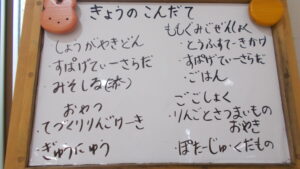 きょうのこんだて
しょうがやきどん
・すぱげてぃーさらだ
・みそしる
おやつ
・てづくりりんごけーき
・ぎゅうにゅう
ももぐみごぜんしょく
・とうふすてーきかけ
・すぱげてぃーさらだ
・ごはん
ごごしょく
・りんごとさつまいもの
おやき
ぽたーじゅ・くだもの